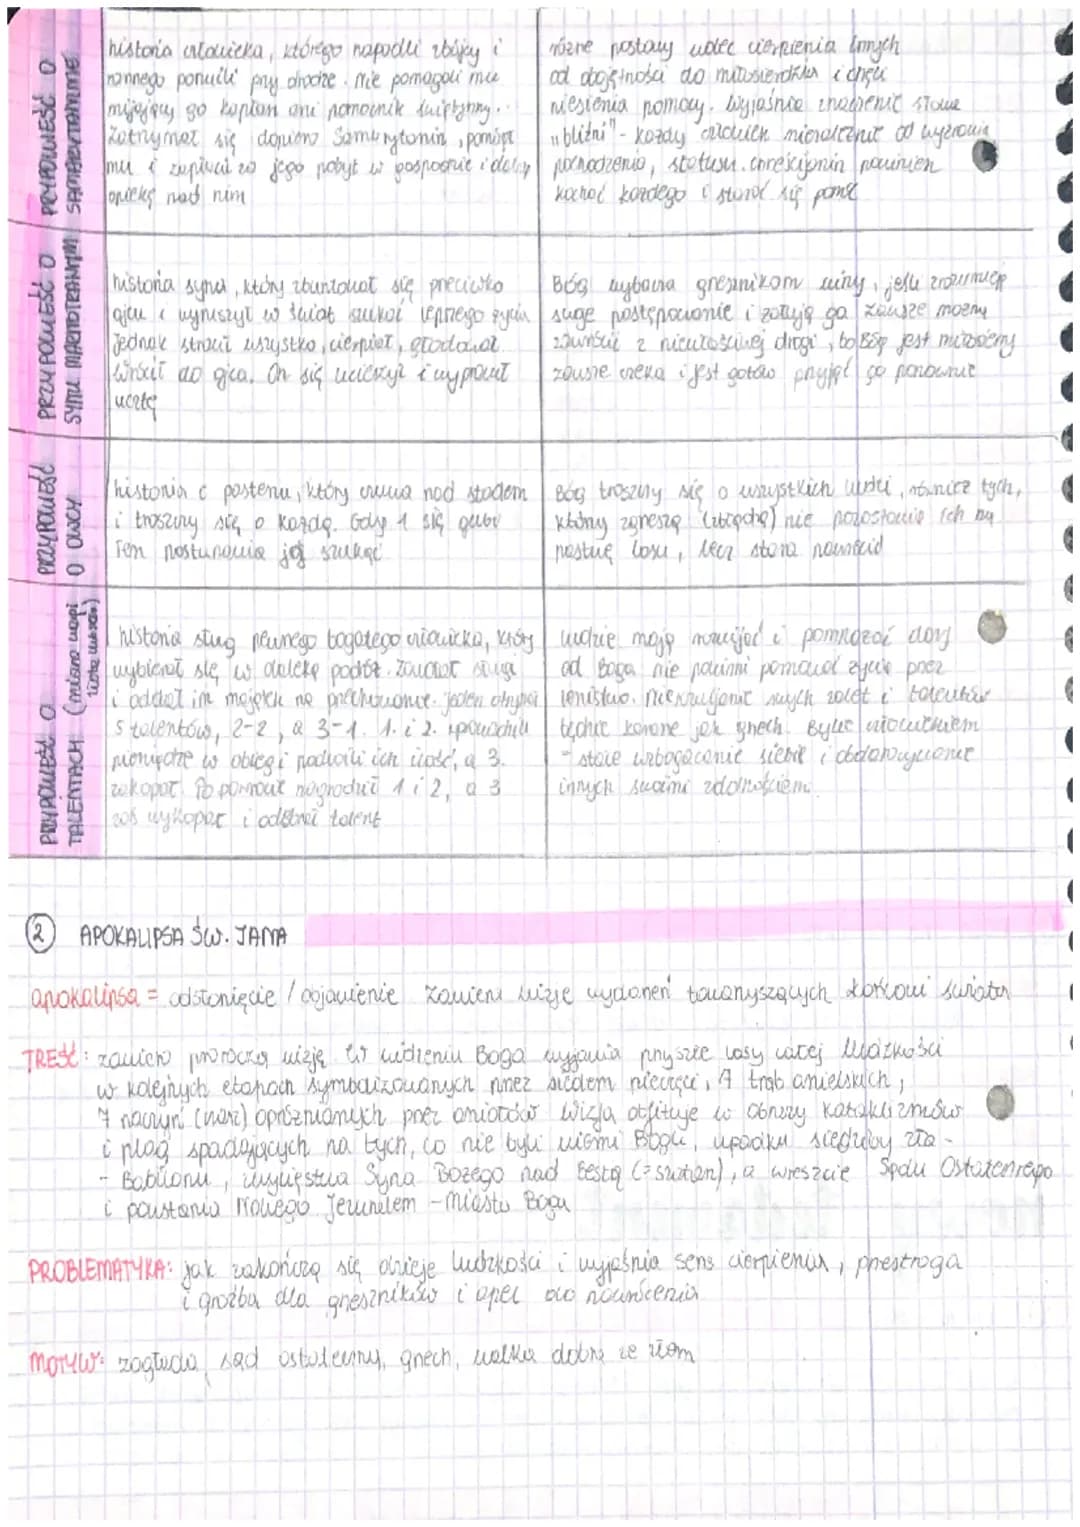 PRZYPOWIEŚĆ O
SAMARYTANINIE
historia człowieka, którego napadli zbójcy i
rannego porzucili przy drodze. Nie pomagali mu
mijający go kapłan ani pomocnik świątynny.
Zatrzymał się dopiero Samarytanin, pomógł
mu i zapłacił za jego pobyt w gospodzie i dalszą
opiekę nad nim
różne postawy wobec cierpienia innych
od obojętności do miłosierdzia i chęci
niesienia pomocy. Wyjaśnia znaczenie słowa
„bliźni" - każdy człowiek niezależnie od wyznania
pochodzenia, statusu. chrześcijanin powinien
kochać każdego i starać się pomóc
PRZYPOWIEŚĆ O
SYNU MARNOTRAWNYM
historia syna, który zbuntował się przeciwko
ojcu i wyruszył w świat szukać lepszego życia
jednak stracił wszystko, cierpiał, głodował
Wrócił do ojca. On się ucieszył i wyprawił
ucztę
Bóg wybacza grzesznikom winy, jeśli zrozumieją
swoje postępowanie i żałują go zawsze można
zawrócić z niewłaściwej drogi, bo Bóg jest miłosierny
zawsze czeka i jest gotów przyjąć go ponownie
PRZYPOWIEŚĆ
O OWCY
historia o pasterzu, który czuwa nad stadem
i troszczy się o każdą. Gdy 1 się gubi
Ten postanawia jej szukać
Bóg troszczy się o wszystkich ludzi, również tych,
którzy zgrzeszą (zbłądzą) nie pozostawia ich na
pastwę losu, lecz stara nawrócić
PRZYPOWIEŚĆ O
TALENTACH (miara wagi
historia sług pewnego bogatego człowieka, który
wybierał się w daleką podróż. Zawołał sługi
i oddał im majątek na przechowanie. jeden otrzymał
5 talentów, 2-2, a 3-1. 1. i 2. wprowadzili
pieniądze w obieg i podwoili ich ilość, a 3.
zakopał. Po powrocie nagrodził 1 i 2, a 3
zaś wykopał i odebrał talent
ludzie mają rozwijać i pomnażać dary
od Boga nie powinni marnować życia przez
lenistwo. Nierozwijanie swych zalet i talentów
będzie karane jak grzech. Bycie człowiekiem
- stałe wzbogacanie siebie i obdarowywanie
innych swoimi zdolnościami
2 APOKALIPSA ŚW. JANA
apokalipsa = odsłonięcie / objawienie zawiera wizje wydarzeń towarzyszących końcowi świata
TREŚĆ: zawiera proroczą wizję. W widzeniu Boga wyjawia przyszłe losy całej ludzkości
w kolejnych etapach symbolizowanych przez siedem pieczęci, 7 trąb anielskich,
7 naczyń (czasz) opróżnianych przez aniołów. Wizja obfituje w obrazy kataklizmów
i plag spadających na tych, co nie byli wierni Bogu, upadku siedziby zła -
- Babilonu, zwycięstwa Syna Bożego nad Bestią (=szatan), a wreszcie Sądu Ostatecznego
i powstania Nowego Jeruzalem - Miasta Boga
PROBLEMATYKA: jak zakończą się dzieje ludzkości i wyjaśnia sens cierpienia, przestroga
i groźba dla grzeszników i apel do nawrócenia
MOTYW: zagłada, sąd ostateczny, grzech, walka dobra ze złem